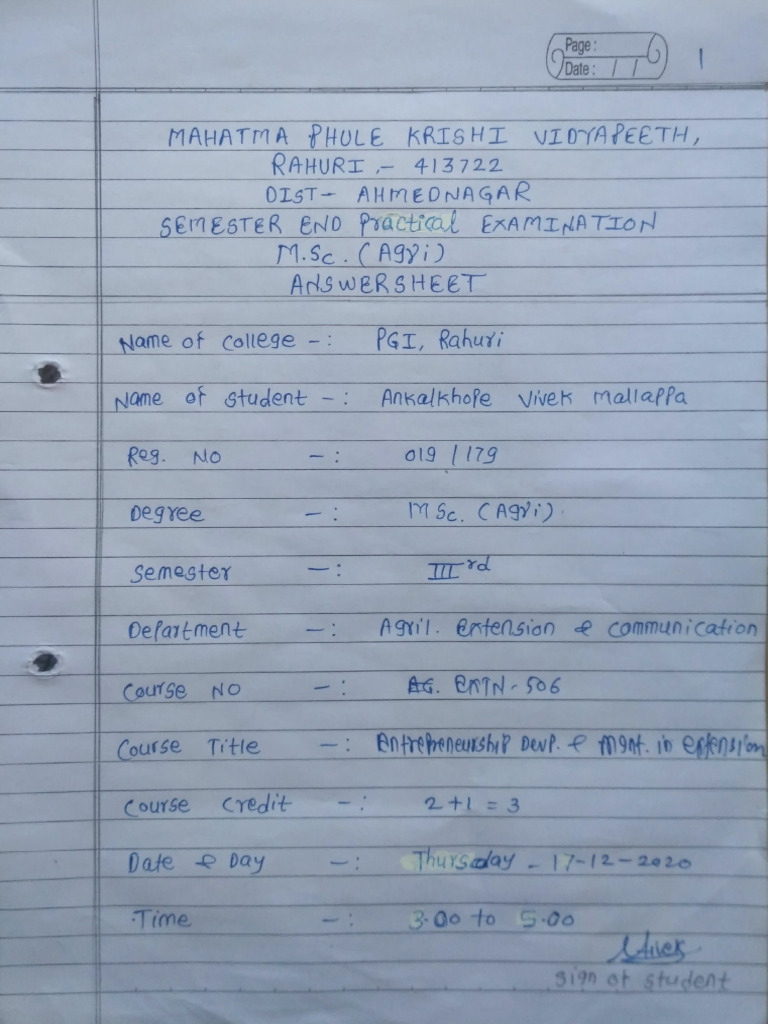 Page : 1
Date : / /
MAHATMA PHULE KRISHI VIDYAPEETH,
RAHURI ,- 413722
DIST- AHMEDNAGAR
SEMESTER END Practical EXAMINATION
M.Sc. (Agri)
ANSWERSHEET
Name of college -: PGI, Rahuri
Name of student -: Ankalkhope Vivek Mallappa
Reg. No -: 019 / 179
Degree -: M Sc. (Agri).
Semester -: III rd
Department -: Agril. Extension & communication
Course No -: AG. EXTN-506
Course Title -: Entrepreneurship Devp. & Mgnt. in extension
Course Credit -: 2+1 = 3
Date & Day -: Thursday - 17-12-2020
Time -: 3.00 to 5.00
Vivek
Sign of student